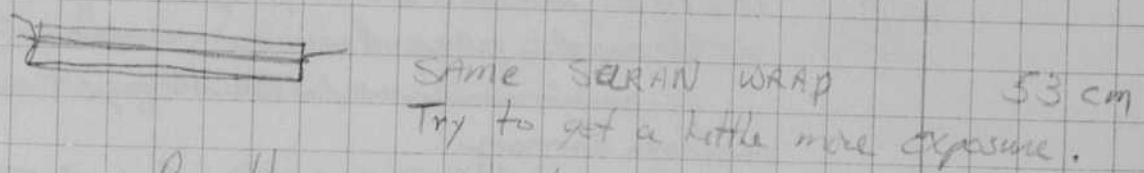 SAME SARAN WRAP 53 cm
Try to get a little more exposure.